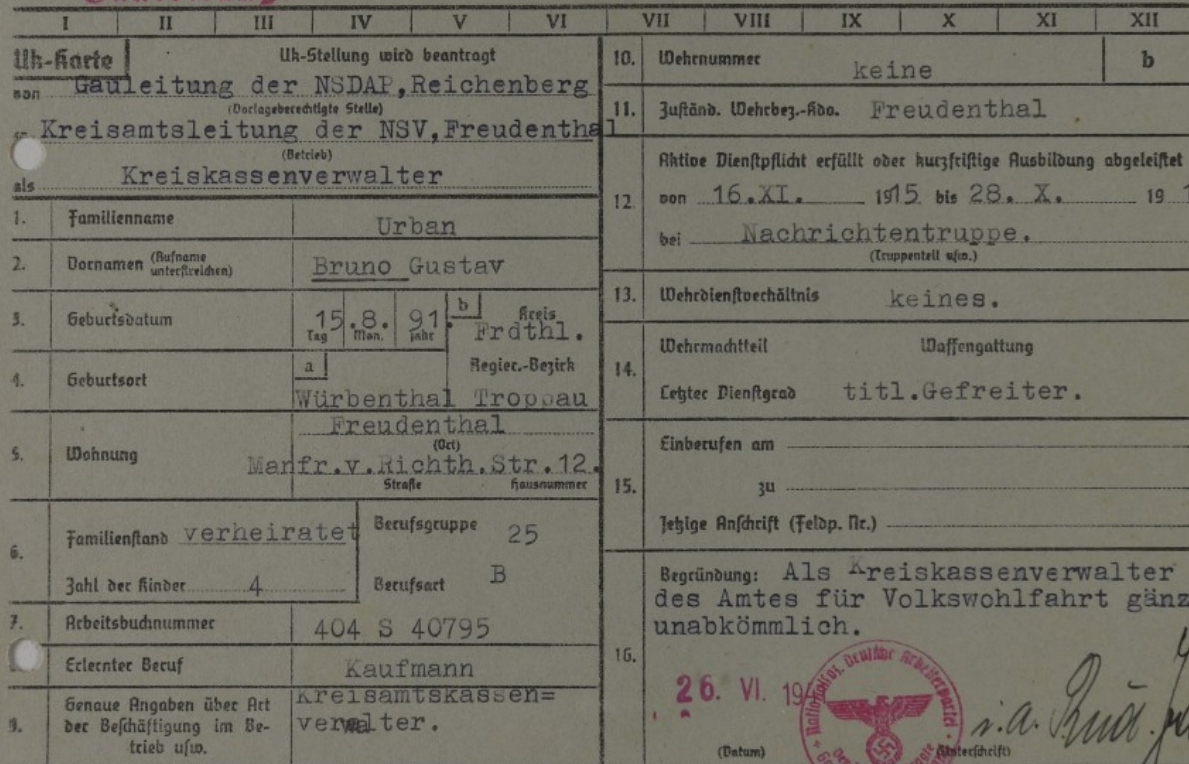 I II III IV V VI VII VIII IX X XI XII
Uk-Karte
Uk-Stellung wird beantragt
von Gauleitung der NSDAP,Reichenberg
(Vorlageberechtigte Stelle)
Kreisamtsleitung der NSV,Freudenthal
(Betrieb)
als Kreiskassenverwalter
1. Familienname Urban
2. Vornamen (Rufname unterstreichen) Bruno Gustav
3. Geburtsdatum 15.8. 91. b Kreis
Tag Mon. Jahr Frdthl.
4. Geburtsort a Regier.-Bezirk
Würbenthal Troppau
Freudenthal
(Ort)
5. Wohnung Manfr.v.Richth.Str.12.
Straße Hausnummer
6. Familienstand verheiratet Berufsgruppe 25
Zahl der Kinder 4 Berufsart B
7. Arbeitsbuchnummer 404 S 40795
Erlernter Beruf Kaufmann
9. Genaue Angaben über Art Kreisamtskassen=
der Beschäftigung im Be- verwalter.
trieb usw.
10. Wehrnummer keine b
11. Zuständ. Wehrbez.-Kdo. Freudenthal
Aktive Dienstpflicht erfüllt oder kurzfristige Ausbildung abgeleistet
12. von 16.XI. 1915 bis 28. X. 19
bei Nachrichtentruppe.
(Truppenteil usw.)
13. Wehrdienstverhältnis keines.
14. Wehrmachtteil Waffengattung
Letzter Dienstgrad titl.Gefreiter.
Einberufen am
15. zu
Jetzige Anschrift (Feldp. Nr.)
16. Begründung: Als Kreiskassenverwalter
des Amtes für Volkswohlfahrt gänz
unabkömmlich.
26. VI. 19
Nationalsoz. Deutsche Arbeiterpartei
i.a.
(Datum) (Unterschrift)